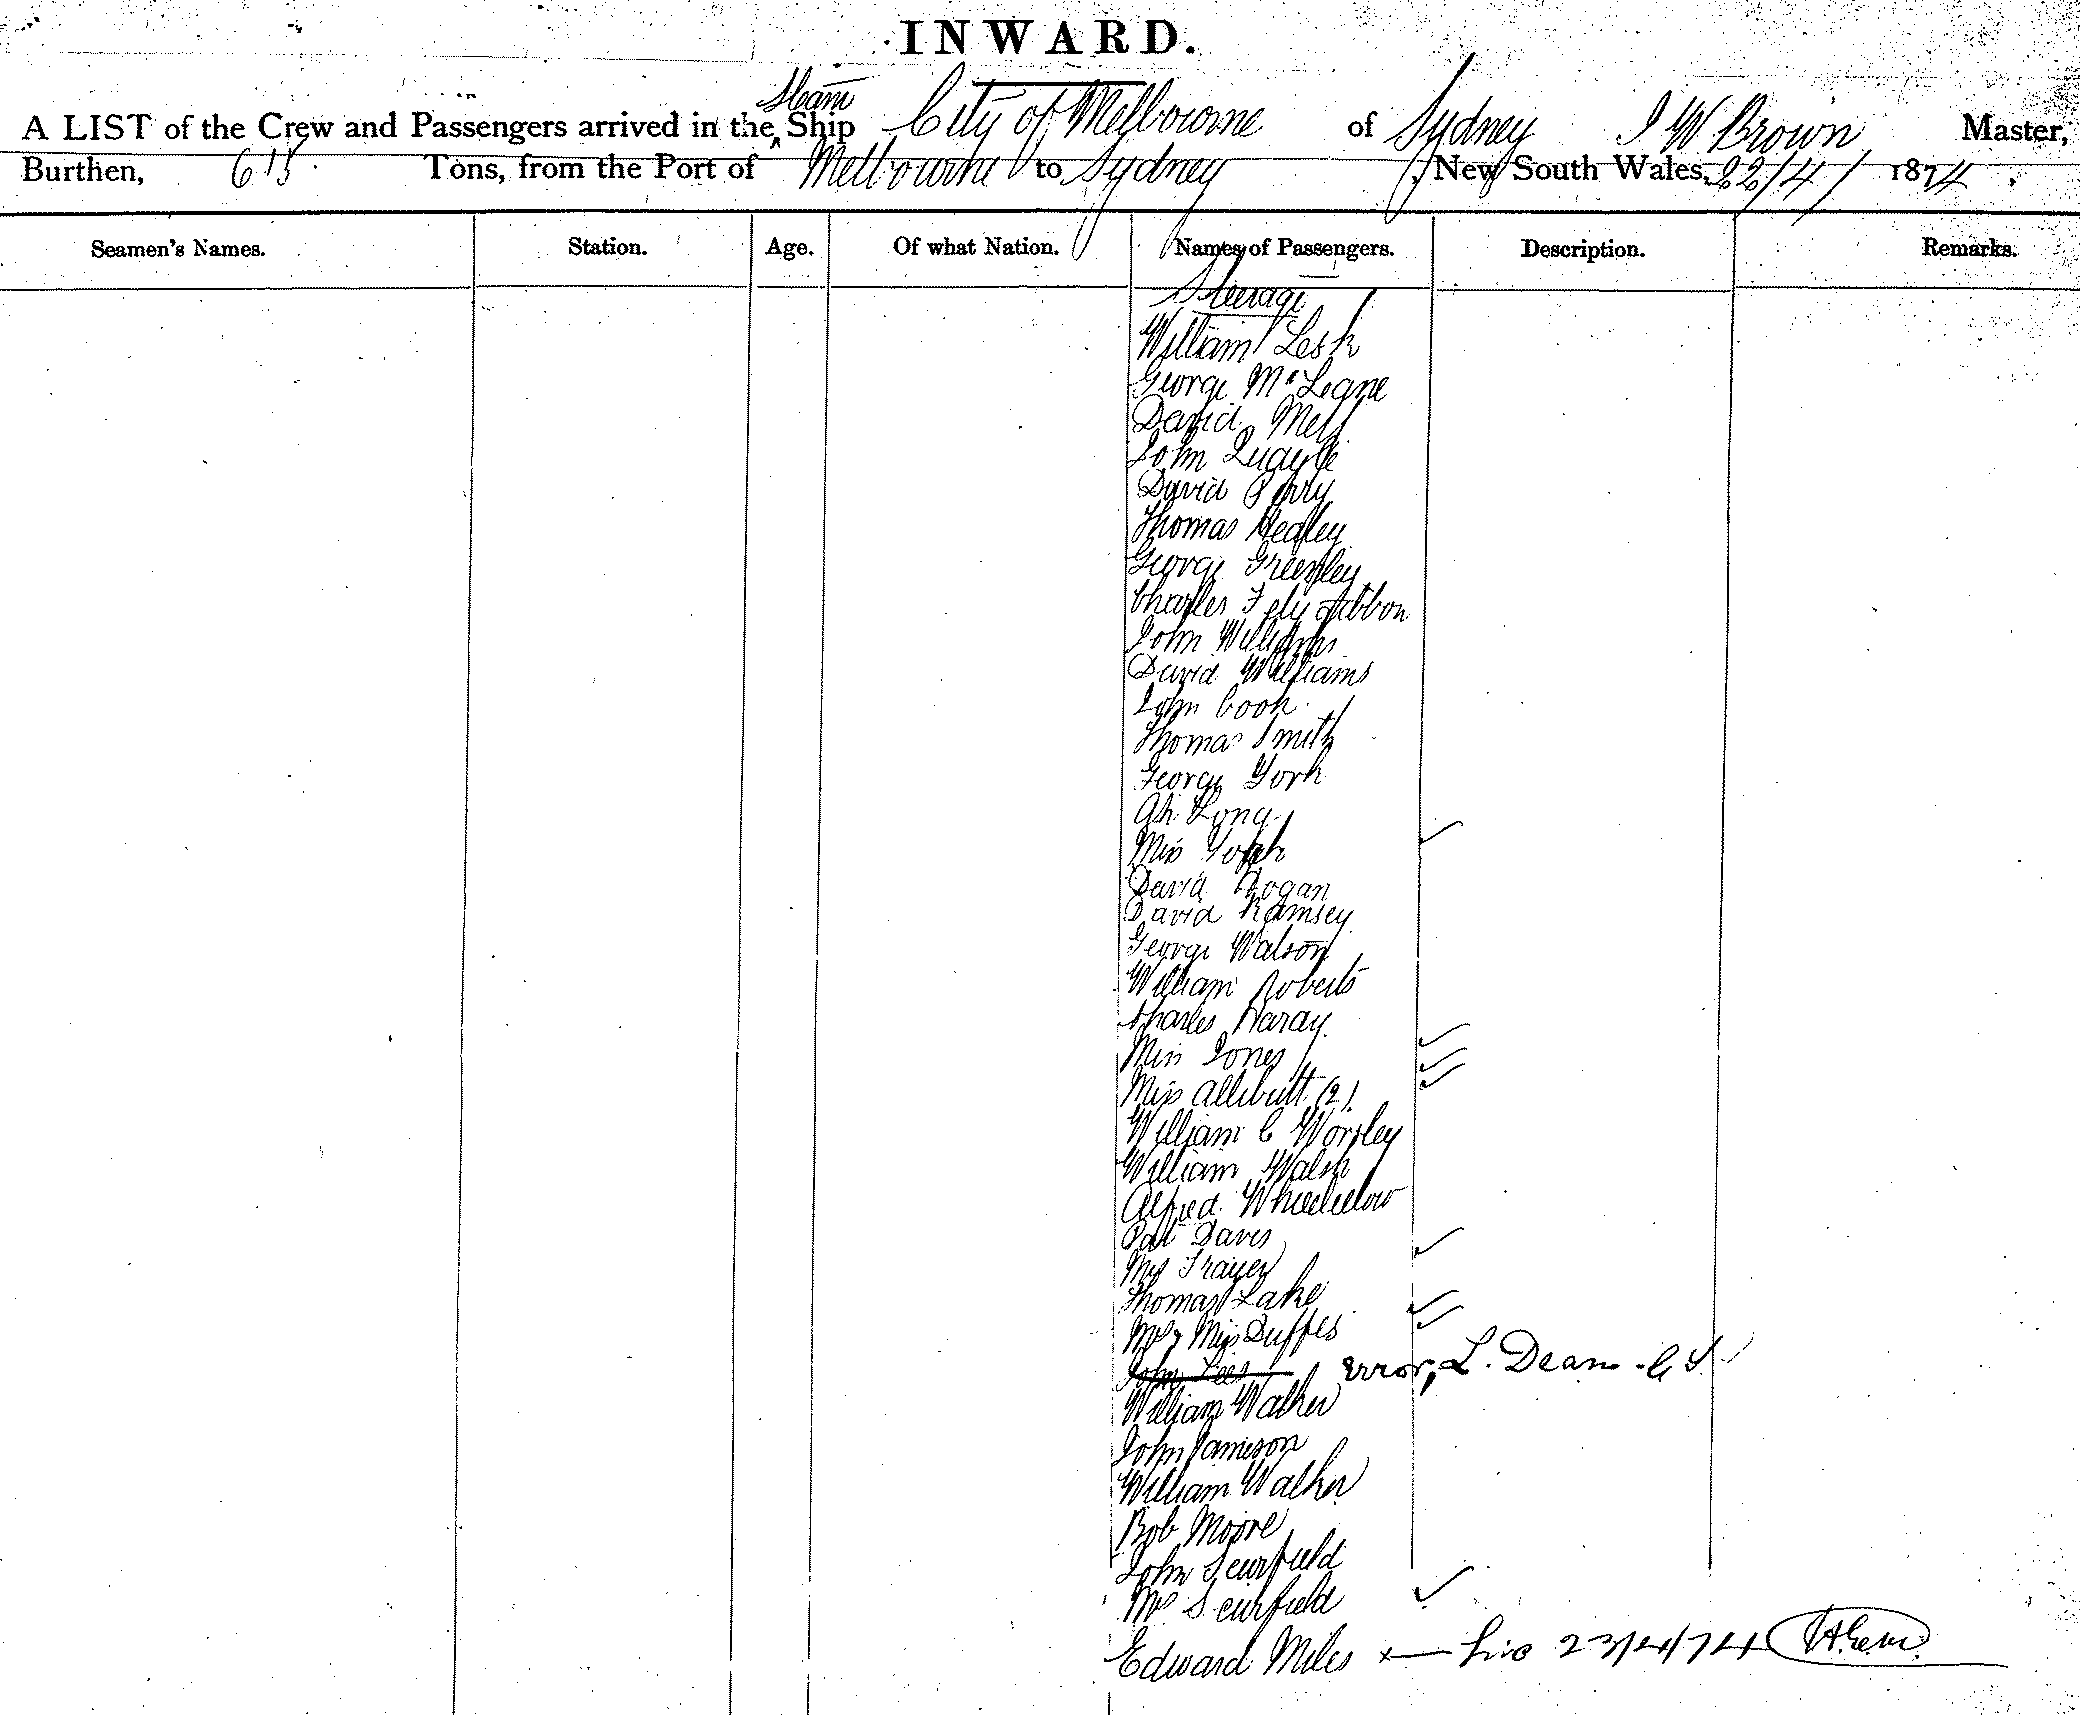 INWARD.
Steam
A LIST of the Crew and Passengers arrived in the Ship City of Melbourne of Sydney J W Brown Master,
Burthen, 615 Tons, from the Port of Melbourne to Sydney, New South Wales, 22/4/ 1874.
Seamen's Names. Station. Age. Of what Nation. Names of Passengers. Description. Remarks.
Steerage
William Lesk
George
David
John Quayle
David
Thomas Hedley
George Greenley
Charles
John Williams
David Williams
John Cook
Thomas Smith
George York
Ah Long
Miss York
David Hogan
David Ramsey
George Watson
William Roberts
Charles
Miss Jones
Miss Allibutt (2)
William C Worsley
William Walsh
Alfred
Pat Davis
Mrs
Thomas Lake
Mrs & Miss Duffes
John Lees Error, L. Dean
William Walker
John Jameson
William Walker
Bob Moore
John Scurfield
Mrs Scurfield
Edward Miles x — 23/4/74